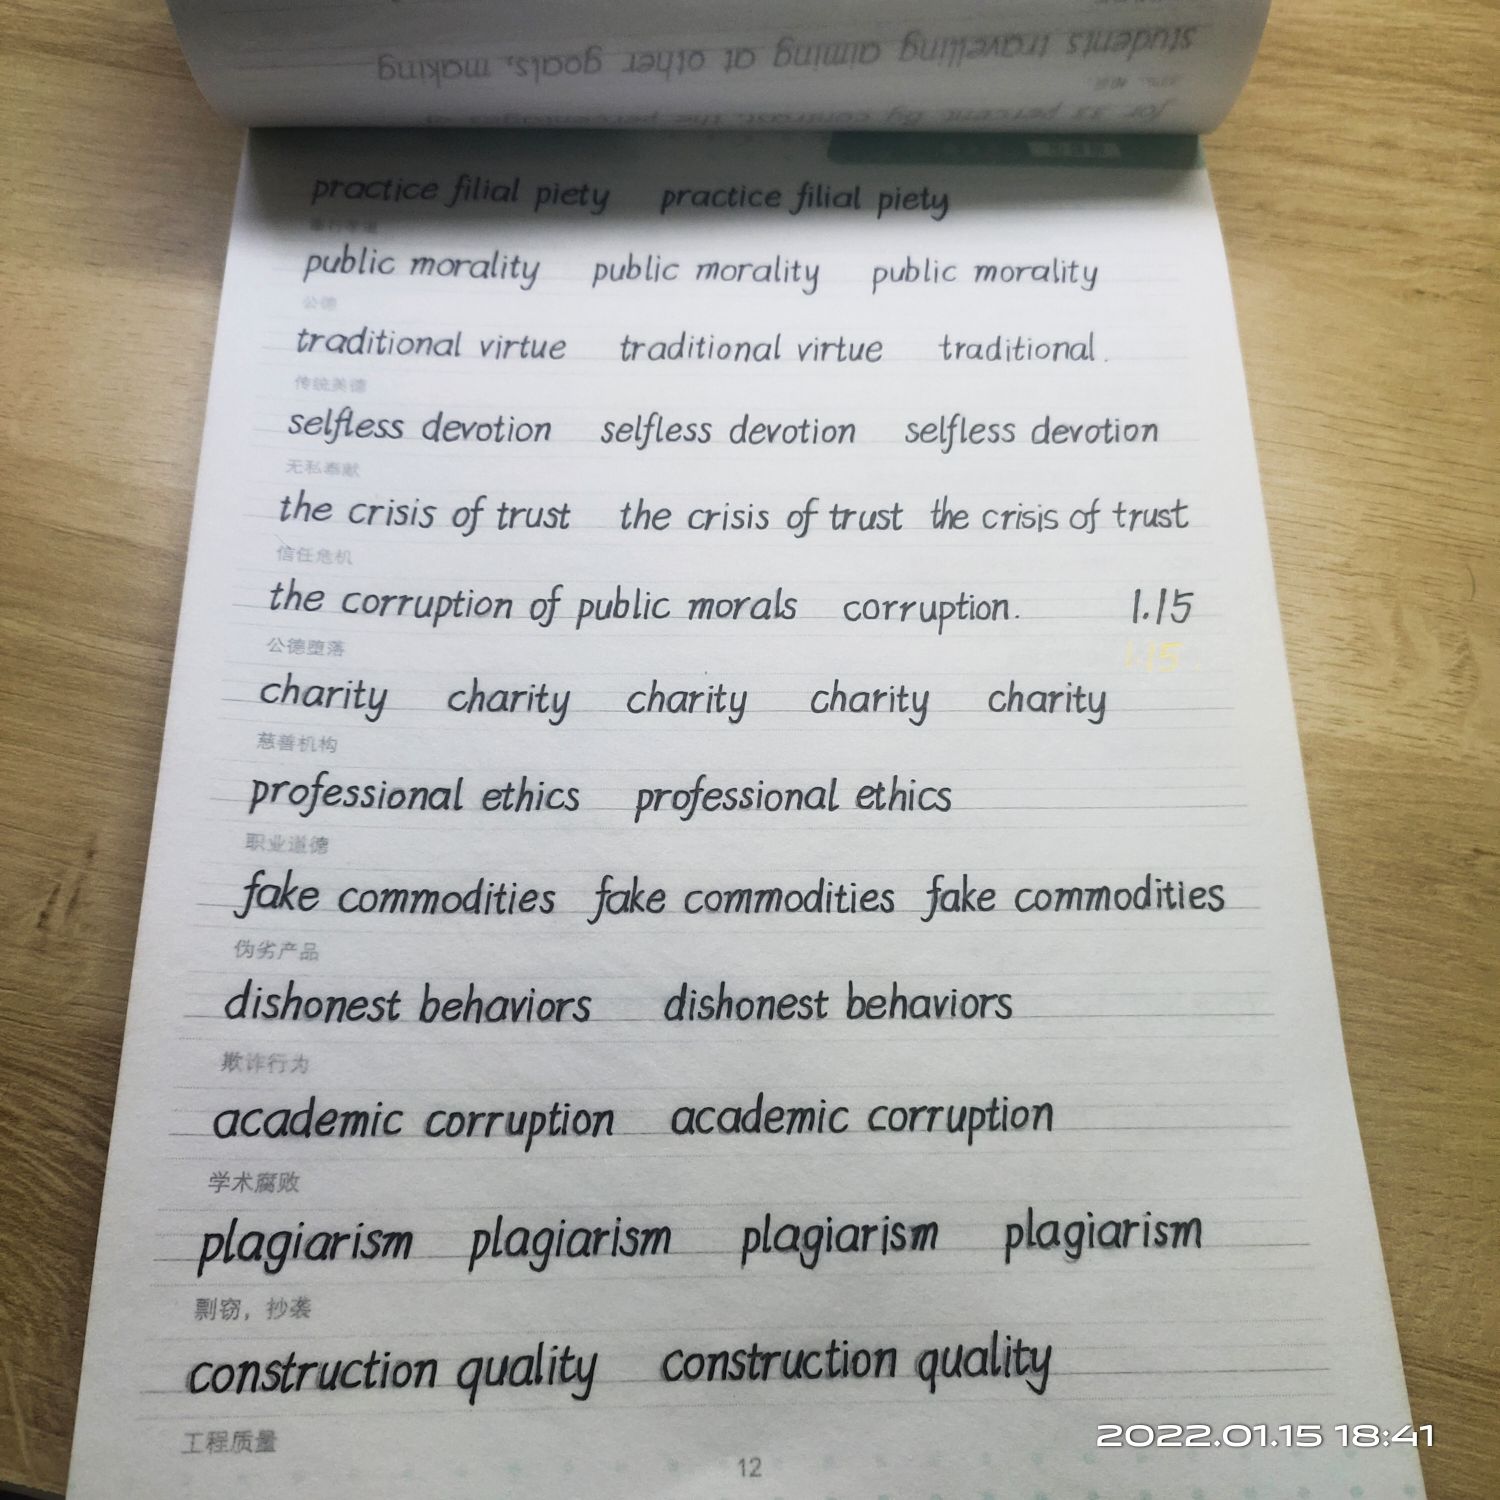 students travelling aiming at other goals, making
for 33 percent. By contrast, the percentages of
practice filial piety practice filial piety
public morality public morality public morality
公德
traditional virtue traditional virtue traditional.
传统美德
selfless devotion selfless devotion selfless devotion
无私奉献
the crisis of trust the crisis of trust the crisis of trust
信任危机
the corruption of public morals corruption. 1.15
公德堕落 1.15.
charity charity charity charity charity
慈善机构
professional ethics professional ethics
职业道德
fake commodities fake commodities fake commodities
伪劣产品
dishonest behaviors dishonest behaviors
欺诈行为
academic corruption academic corruption
学术腐败
plagiarism plagiarism plagiarism plagiarism
剽窃，抄袭
construction quality construction quality
工程质量
12
2022.01.15 18:41